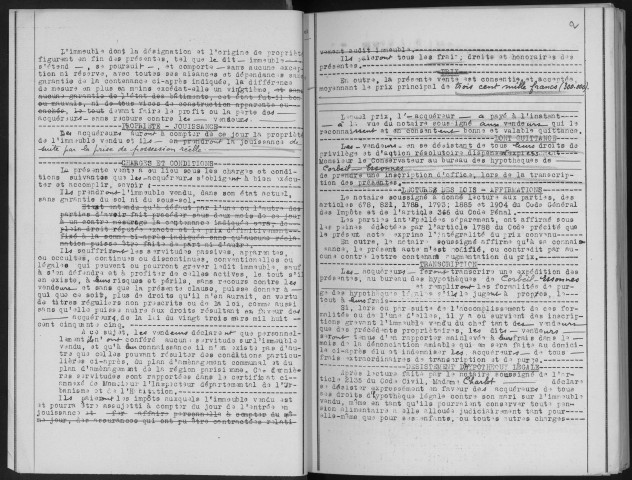 L'immeuble dont la désignation et l'origine de propriété
figurent en fin des présentes, tel que le dit - immeuble---
s'étend -, se poursuit -, et comporte - sans aucune excep-
tion ni réserve, avec toutes ses aisances et dépendances sans
garantie de la contenance ci-après indiquée, la différence
de mesure en plus ou moins excédât-elle un vingtième, et sans
aucune garantie de l'état des bâtiments,
ou mauvais, ni de tous vices de construction apparents ou
cachés, le tout devant faire le profit ou la perte des
acquéreurs- sans recours contre les -- vendeurs.
PROPRIETE - JOUISSANCE
Les acquéreurs auront à compter du ce jour la propriété
de l'immeuble vendu et ils en prendront la jouissance de
suite par la prise de possession réelle
CHARGES ET CONDITIONS
La présente vente a eu lieu sous les charges et condi-
tions suivantes que les acquéreurs s'obligent à bien exécu-
ter et accomplir, savoir :
Ils prendront l'immeuble vendu, dans son état actuel,
sans garantie du sol ni du sous-sol.
à défaut par l'une ou l'autre des
parties d'avoir fait procéder sous deux mois de ce jour
à un contre mesurage la contenance indiquée sera, de
plein droit réputée exacte et le prix définitivement
fixé à la somme ci-après indiquée sans qu'aucune récla-
mation puisse être faite de part ni d'autre.
Ils souffriront les servitudes passives, apparentes,
ou occultes, continues ou discontinues, conventionnelles ou
légales qui peuvent ou pourront grever ledit immeuble, sauf
à s'en défendre et à profiter de celles actives, le tout s'il
en existe, à leurs risques et périls, sans recours contre les
vendeurs et sans que la présente clause, puisse donner à
qui que ce soit, plus de droits qu'il n'en aurait, en vertu
de titres réguliers non prescrits ou de la loi, comme aussi
sans qu'elle puisse nuire aux droits résultant en faveur des
acquéreurs, de la loi du vingt trois mars mil huit
cent cinquante cinq.
A ce sujet, les vendeurs déclarent que personnel-
lement ils n'ont conféré aucune servitude sur l'immeuble
vendu, et qu'à leur connaissance il n'en existe pas d'au-
tres que celles pouvant résulter des conditions particu-
lières ci-après, du plan d'aménagement communal et du
plan d'aménagement de la région parisienne. Ces derniè-
res servitudes sont rapportées dans le certificat ci-
annexé de Monsieur l'Inspecteur départemental de l'Ur-
banisme et de l'Habitation.
Ils paieront les impôts auxquels l'immeuble vendu est
et pourra être assujetti à compter du jour de l'entrée en
jouissance et
jour, des assurances qui ont pu être contractées relati-
2
vement audit immeuble.
Ils paieront tous les frais, droits et honoraires des
présentes.
PRIX
En outre, la présente vente est consentie et acceptée,
moyennant le prix principal de trois cent mille francs (300.000).
Lequel prix, l'acquéreur - a payé à l'instant----
à la vue du notaire soussigné aux vendeurs qui le
reconnaissent et en consentent bonne et valable quittance.
DONT QUITTANCE
Les -- vendeurs en se désistant de tous leurs droits de
privilège et d'action résolutoire dispensent expressément
Monsieur le Conservateur au bureau des hypothèques de
Corbeil-Essonnes
de prendre une inscription d'office, lors de la transcrip-
tion des présentes.
LECTURE DES LOIS - AFFIRMATIONS
Le notaire soussigné a donné lecture aux parties, des
articles 678, 821, 1799, 1793, 1885 et 1904 du Code Général
des Impôts et de l'article 366 du Code Pénal.
Les parties interpellées séparément, ont affirmé sous
les peines édictées par l'article 1798 du Code précité que
le présent acte exprime l'intégralité du prix convenu---
En outre, le notaire soussigné affirme qu'à sa connais-
sance, le présent acte n'est modifié, ou contredit par au-
cune contre lettre contenant augmentation du prix.
TRANSCRIPTION
Les acquéreurs feront transcrire une expédition des
présentes, au bureau des hypothèques de Corbeil-Essonnes
et rempliront les formalités de pur-
ge des hypothèques légales s'ils le jugent à propos, le-
tout à leurs frais
Si, lors ou par suite de l'accomplissement de ces for-
malités ou de l'une d'elles, il y a ou survient des inscrip-
tions grevant l'immeuble vendu du chef tant des vendeurs
que des précédents propriétaires, les dits - vendeurs
seront tenus d'en rapporter mainlevée à leurs frais dans le
mois de la dénonciation amiable qui en sera faite au domici-
le ci-après élu et indemniser les acquéreurs - de tous
frais extraordinaires de transcription et de purge.
DESISTEMENT D'HYPOTHEQUE LEGALE
Après lecture faite par le notaire soussigné de l'ar-
ticle 2135 du Code Civil, Madame Charlot déclare
se désister expressément en faveur des acquéreurs de tous
ses droits d'hypothèque légale contre son mari sur l'immeuble
vendu, même en tant qu'ils pourraient conserver toute pen-
sion alimentaire à elle allouée judiciairement tant pour-
elle-même que pour ses enfants, ou toutes autres charges----